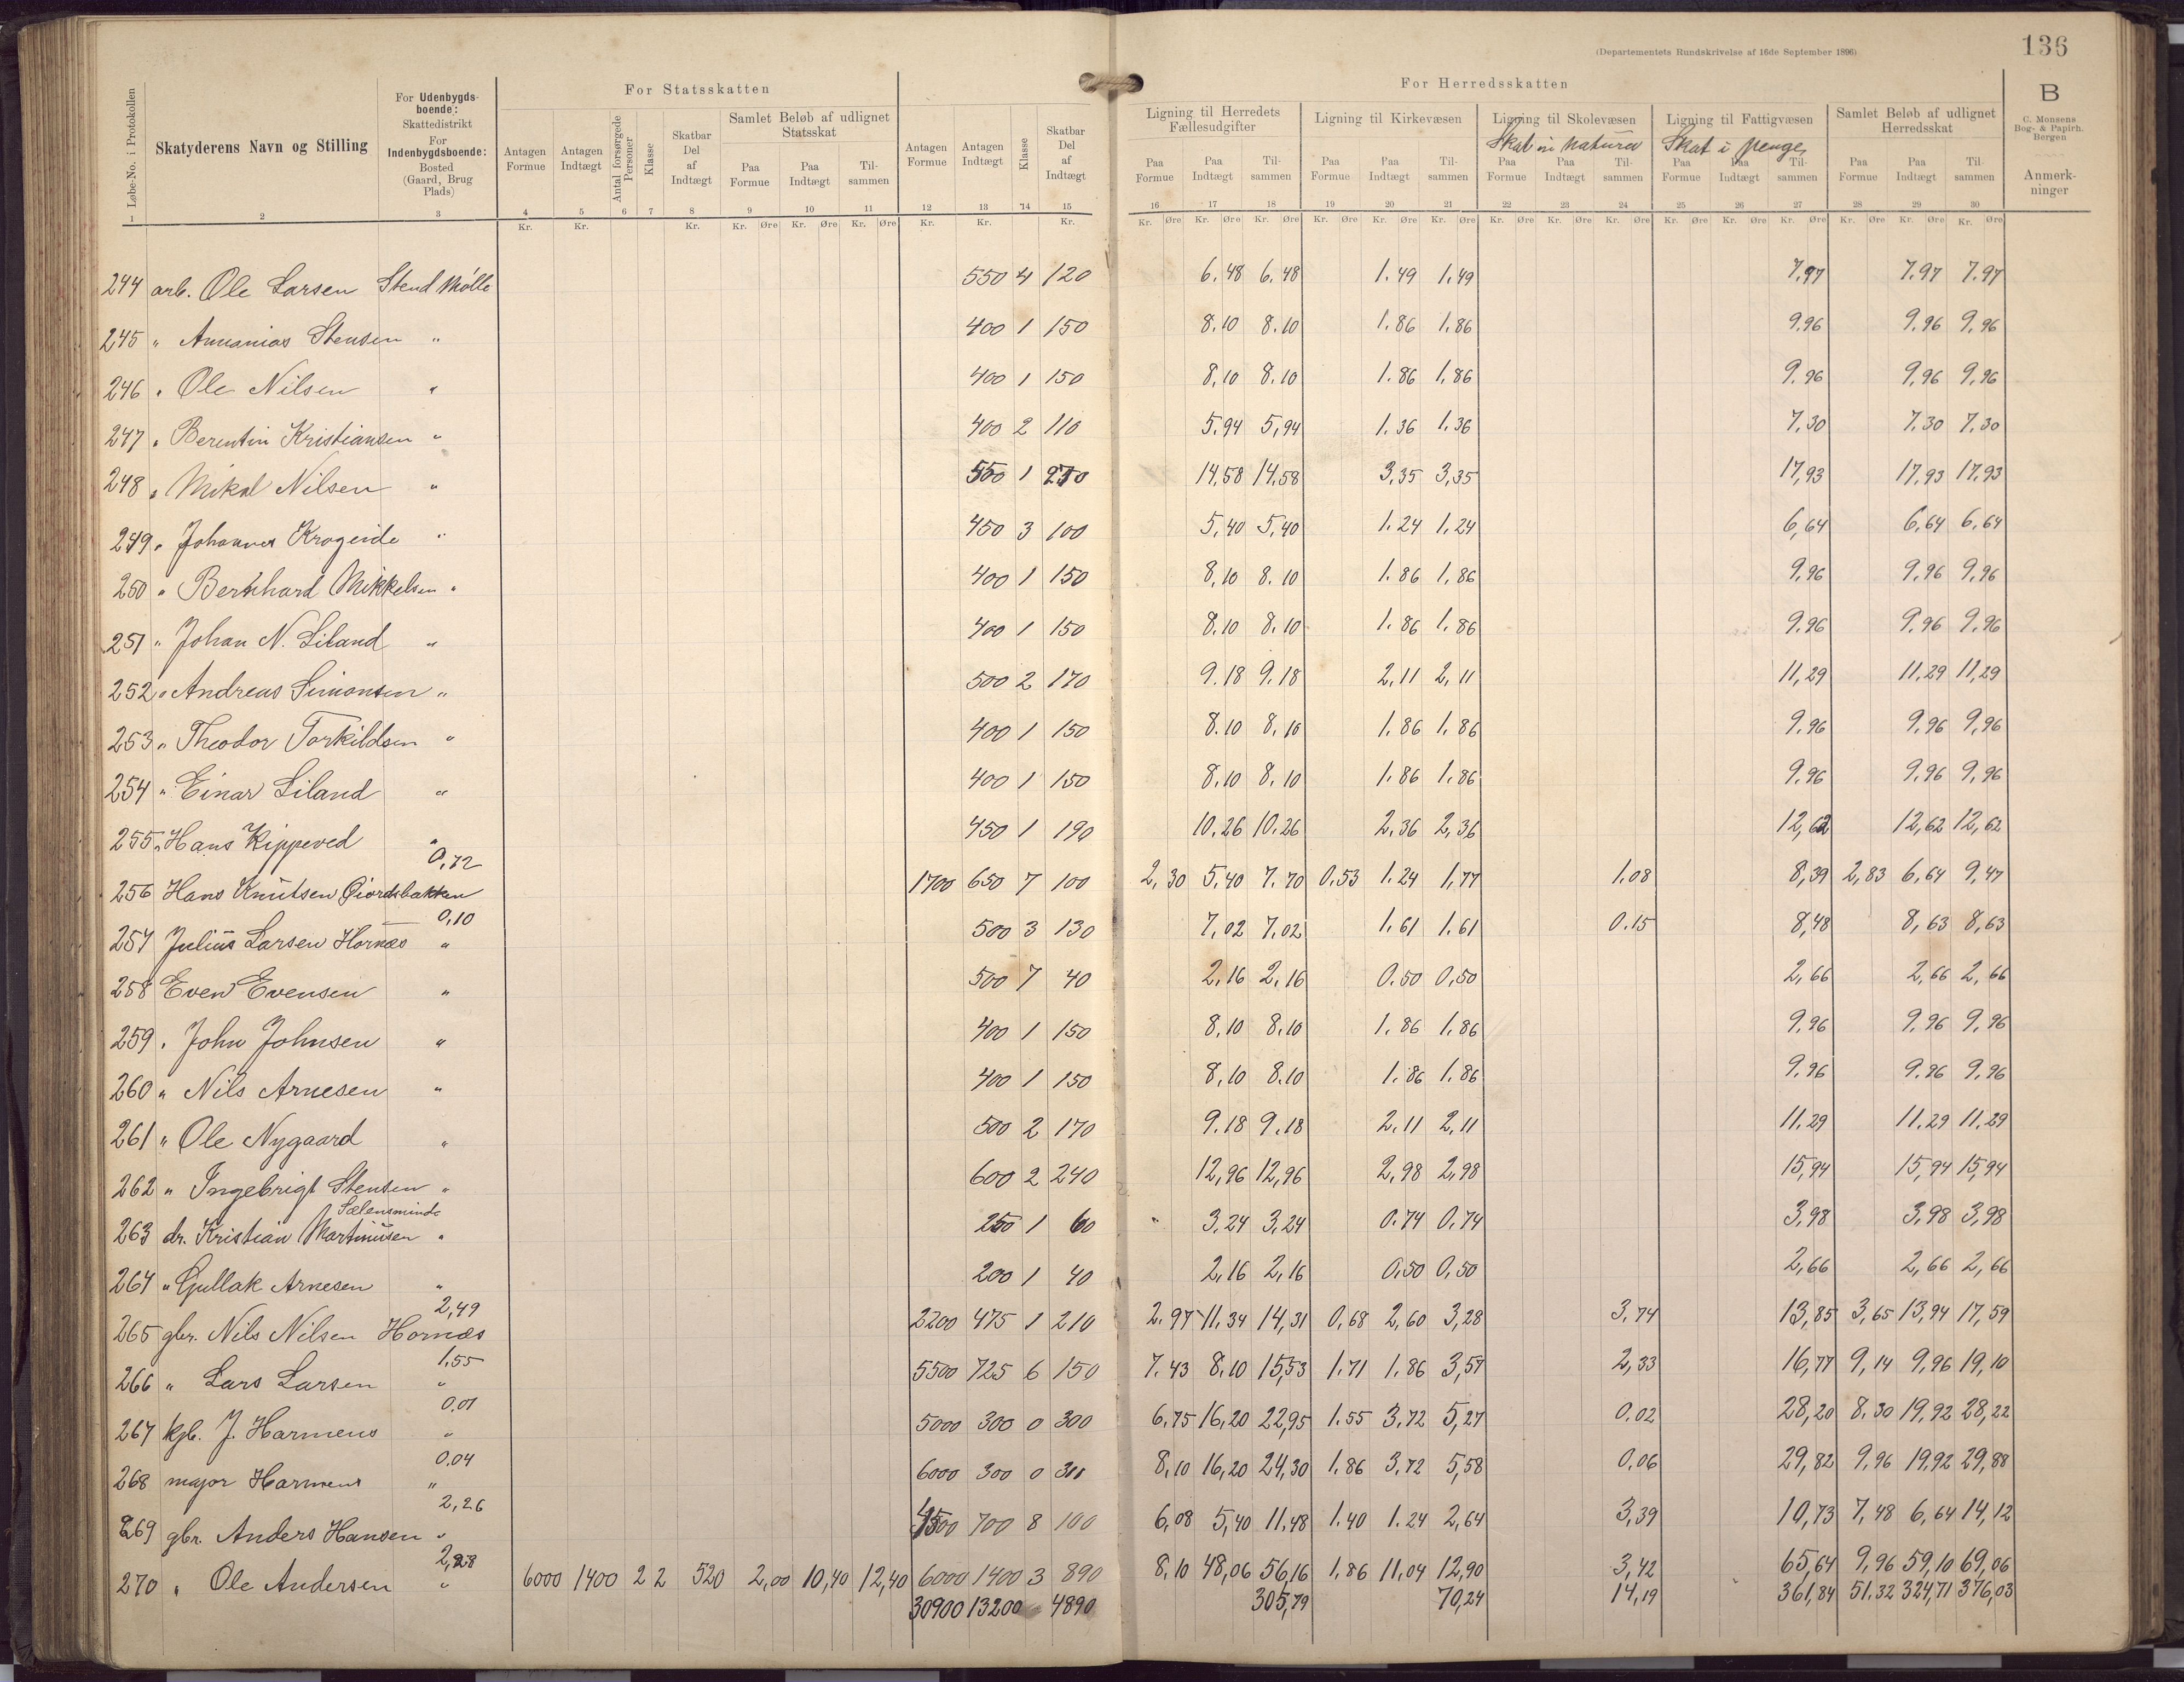 (Departementets Rundskrivelse af 16de September 1896)
136
For Statsskatten
For Herredsskatten
B
C. Monsens Bog- & Papirh. Bergen
Anmerkninger
Løbe-No. i Protokollen
Skatyderens Navn og Stilling
For Udenbygdsboende: Skattedistrikt For Indenbygdsboende: Bosted (Gaard, Brug Plads)
Antagen Formue
Antagen Indtægt
Antal forsørgede Personer
Klasse
Skatbar Del af Indtægt
Samlet Beløb af udlignet Statsskat
Paa Formue Paa Indtægt Tilsammen
Antagen Formue
Antagen Indtægt
Klasse
Skatbar Del af Indtægt
Ligning til Herredets Fællesudgifter
Paa Formue Paa Indtægt Tilsammen
Ligning til Kirkevæsen
Paa Formue Paa Indtægt Tilsammen
Ligning til Skolevæsen
Skat in natura
Paa Formue Paa Indtægt Tilsammen
Ligning til Fattigvæsen
Skat i penge
Paa Formue Paa Indtægt Tilsammen
Samlet Beløb af udlignet Herredsskat
Paa Formue Paa Indtægt Tilsammen
1 2 3 4 5 6 7 8 9 10 11 12 13 14 15 16 17 18 19 20 21 22 23 24 25 26 27 28 29 30
Kr. Kr. Kr. Kr. Øre Kr. Øre Kr. Øre Kr. Kr. Kr. Kr. Øre Kr. Øre Kr. Øre Kr. Øre Kr. Øre Kr. Øre Kr. Øre Kr. Øre Kr. Øre Kr. Øre Kr. Øre Kr. Øre Kr. Øre Kr. Øre Kr. Øre
244 arb. Ole Larsen Stend Mølle 550 4 120 6.48 6.48 1.49 1.49 7.97 7.97 7.97
245 " Annanias Stensen " 400 1 150 8.10 8.10 1.86 1.86 9.96 9.96 9,96
246 " Ole Nilsen " 400 1 150 8,10 8.10 1.86 1,86 9.96 9,96 9,96
247 " Berentin Kristiansen " 400 2 110 5.94 5,94 1.36 1.36 7,30 7.30 7.30
248 " Mikal Nilsen " 550 1 270 14,58 14,58 3,35 3,35 17,93 17,93 17,93
249 " Johannes Krogeide " 450 3 100 5,40 5,40 1.24 1,24 6,64 6,64 6,64
250 " Bernhard Mikkelsen " 400 1 150 8,10 8.10 1.86 1,86 9,96 9,96 9,96
251 " Johan N. Liland " 400 1 150 8.10 8,10 1.86 1,86 9.96 9.96 9,96
252 " Andreas Simonsen " 500 2 170 9.18 9.18 2,11 2,11 11,29 11.29 11,29
253 " Theodor Torkildsen " 400 1 150 8.10 8,10 1.86 1,86 9.96 9,96 9,96
254 " Einar Liland " 400 1 150 8,10 8,10 1.86 1.86 9.96 9,96 9,96
255 " Hans Kippeved " 450 1 190 10,26 10.26 2,36 2,36 12,62 12,62 12,62
0,72
256 Hans Knutsen Gjordsbakken 1700 650 7 100 2,30 5,40 7.70 0,53 1.24 1,77 1,08 8,39 2,83 6,64 9,47
0,10
257 Julius Larsen Hornæs " 500 3 130 7,02 7,02 1.61 1.61 0.15 8,48 8,63 8,63
258 Even Evensen " 500 7 40 2,16 2,16 0.50 0,50 2,66 2,66 2,66
259 " John Johnsen " 400 1 150 8,10 8.10 1.86 1.86 9,96 9,96 9,96
260 " Nils Arnesen " 400 1 150 8,10 8.10 1.86 1.86 9.96 9.96 9,96
261 " Ole Nygaard " 500 2 170 9.18 9.18 2.11 2,11 11.29 11.29 11.29
262 " Ingebrigt Stensen " 600 2 240 12,96 12,96 2,98 2,98 15,94 15,94 15,94
Sælensminde
263 dr. Kristian Martinusen " 250 1 60 " 3,24 3,24 0.74 0,74 3,98 3,98 3,98
264 " Gullak Arnesen " 200 1 40 2,16 2,16 0,50 0,50 2,66 2,66 2,66
2,49
265 gbr. Nils Nilsen Hornæs 2200 475 1 210 2.97 11,34 14,31 0,68 2,60 3,28 3,74 13,85 3,65 13,94 17,59
1,55
266 " Lars Larsen " 5500 725 6 150 7.43 8,10 15,53 1.71 1.86 3,57 2,33 16,77 9,14 9,96 19,10
0.01
267 kjb. J. Harmens " 5000 300 0 300 6,75 16,20 22,95 1.55 3,72 5,27 0,02 28,20 8,30 19,92 28,22
0.04
268 major Harmens " 6000 300 0 300 8,10 16,20 24,30 1.86 3,72 5,58 0,06 29,82 9,96 19,92 29,88
2,26
269 gbr. Anders Hansen " 4500 700 8 100 6,08 5,40 11,48 1.40 1.24 2,64 3,39 10,73 7,48 6,64 14,12
2,28
270 " Ole Andersen " 6000 1400 2 2 520 2,00 10,40 12,40 6000 1400 3 890 8,10 48,06 56,16 1,86 11,04 12,90 3,42 65,64 9,96 59,10 69,06
30900 13200 4890 305,79 70,24 14,19 361,84 51.32 324,71 376,03